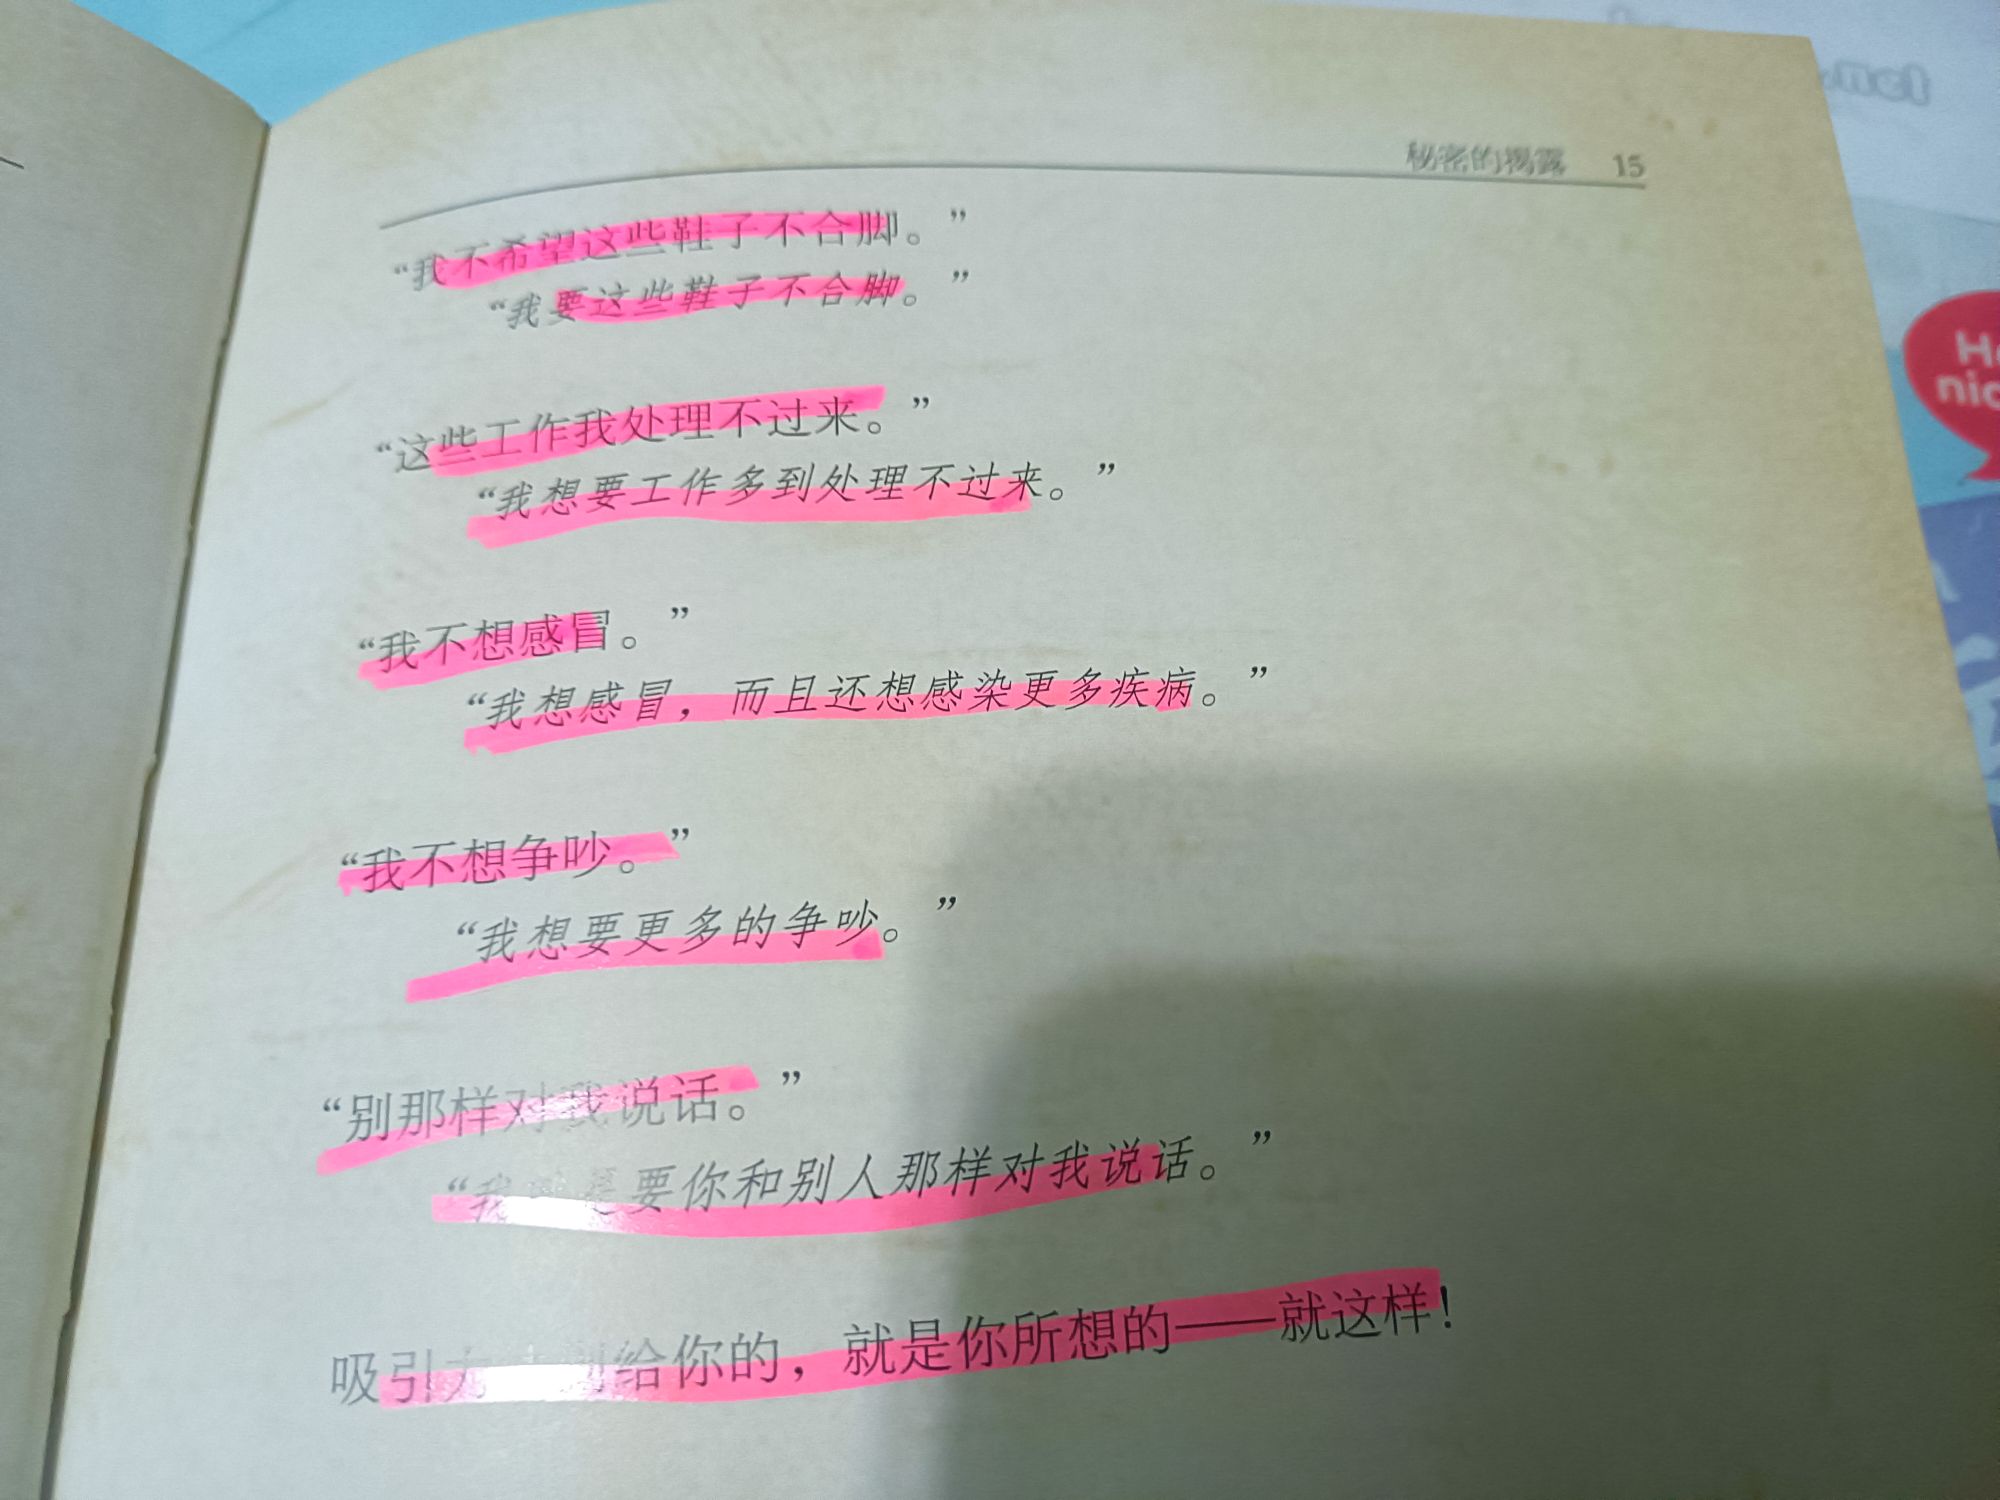 秘密的揭露 15
“我不希望这些鞋子不合脚。”
“我要这些鞋子不合脚。”
“这些工作我处理不过来。”
“我想要工作多到处理不过来。”
“我不想感冒。”
“我想感冒，而且还想感染更多疾病。”
“我不想争吵。”
“我想要更多的争吵。”
“别那样对我说话。”
“我要你和别人那样对我说话。”
吸引力给你的，就是你所想的——就这样！
.net
nic